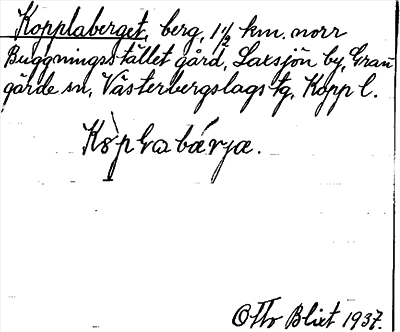 Kopplaberget, berg, 1 1/2 km. norr
Buggningsstället gård, Laxsjön by, Gran-
gärde sn, Västerbergslags tg, Kopp l.
Otto Blixt 1937.